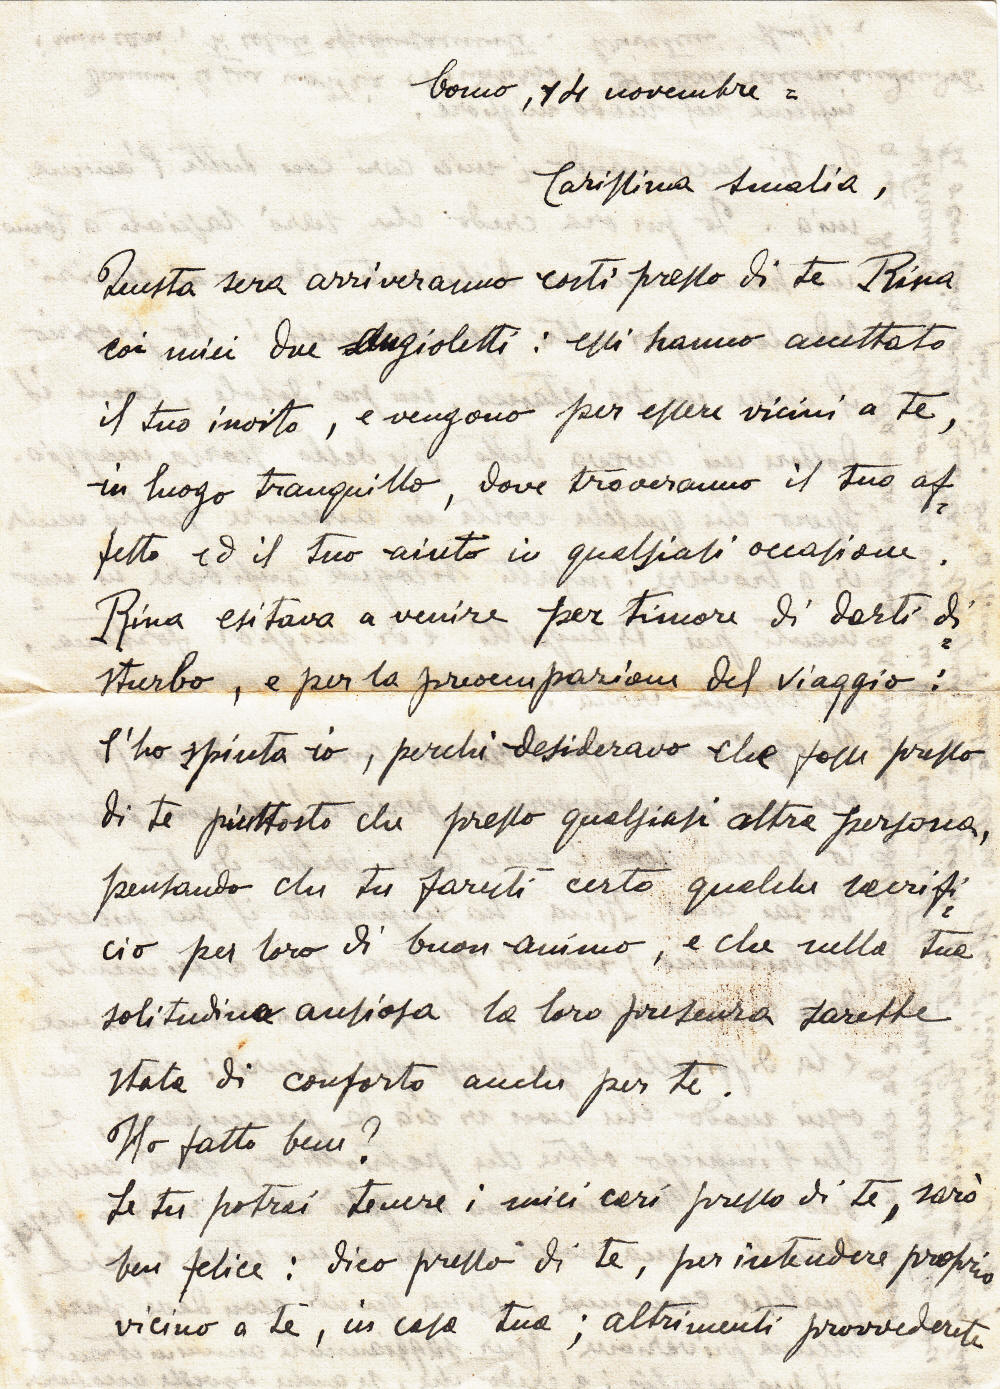 Como, 14 novembre =
Carissima Amalia,
Questa sera arriveranno costì presso di te Rina
coi miei due angioletti : essi hanno accettato
il tuo invito, e vengono per essere vicini a te,
in luogo tranquillo, dove troveranno il tuo af=
fetto ed il tuo aiuto in qualsiasi occasione.
Rina esitava a venire per timore di darti di=
sturbo, e per la preoccupazione del viaggio :
l'ho spinta io, perchè desideravo che fosse presso
di te piuttosto che presso qualsiasi altra persona,
pensando che tu faresti certo qualche sacrifi=
cio per loro di buon animo, e che nella tua
solitudine ansiosa la loro presenza sarebbe
stata di conforto anche per te.
Ho fatto bene?
Se tu potrai tenere i miei cari presso di te, sarò
ben felice : dico presso di te, per intendere proprio
vicino a te, in casa tua ; altrimenti provvederete